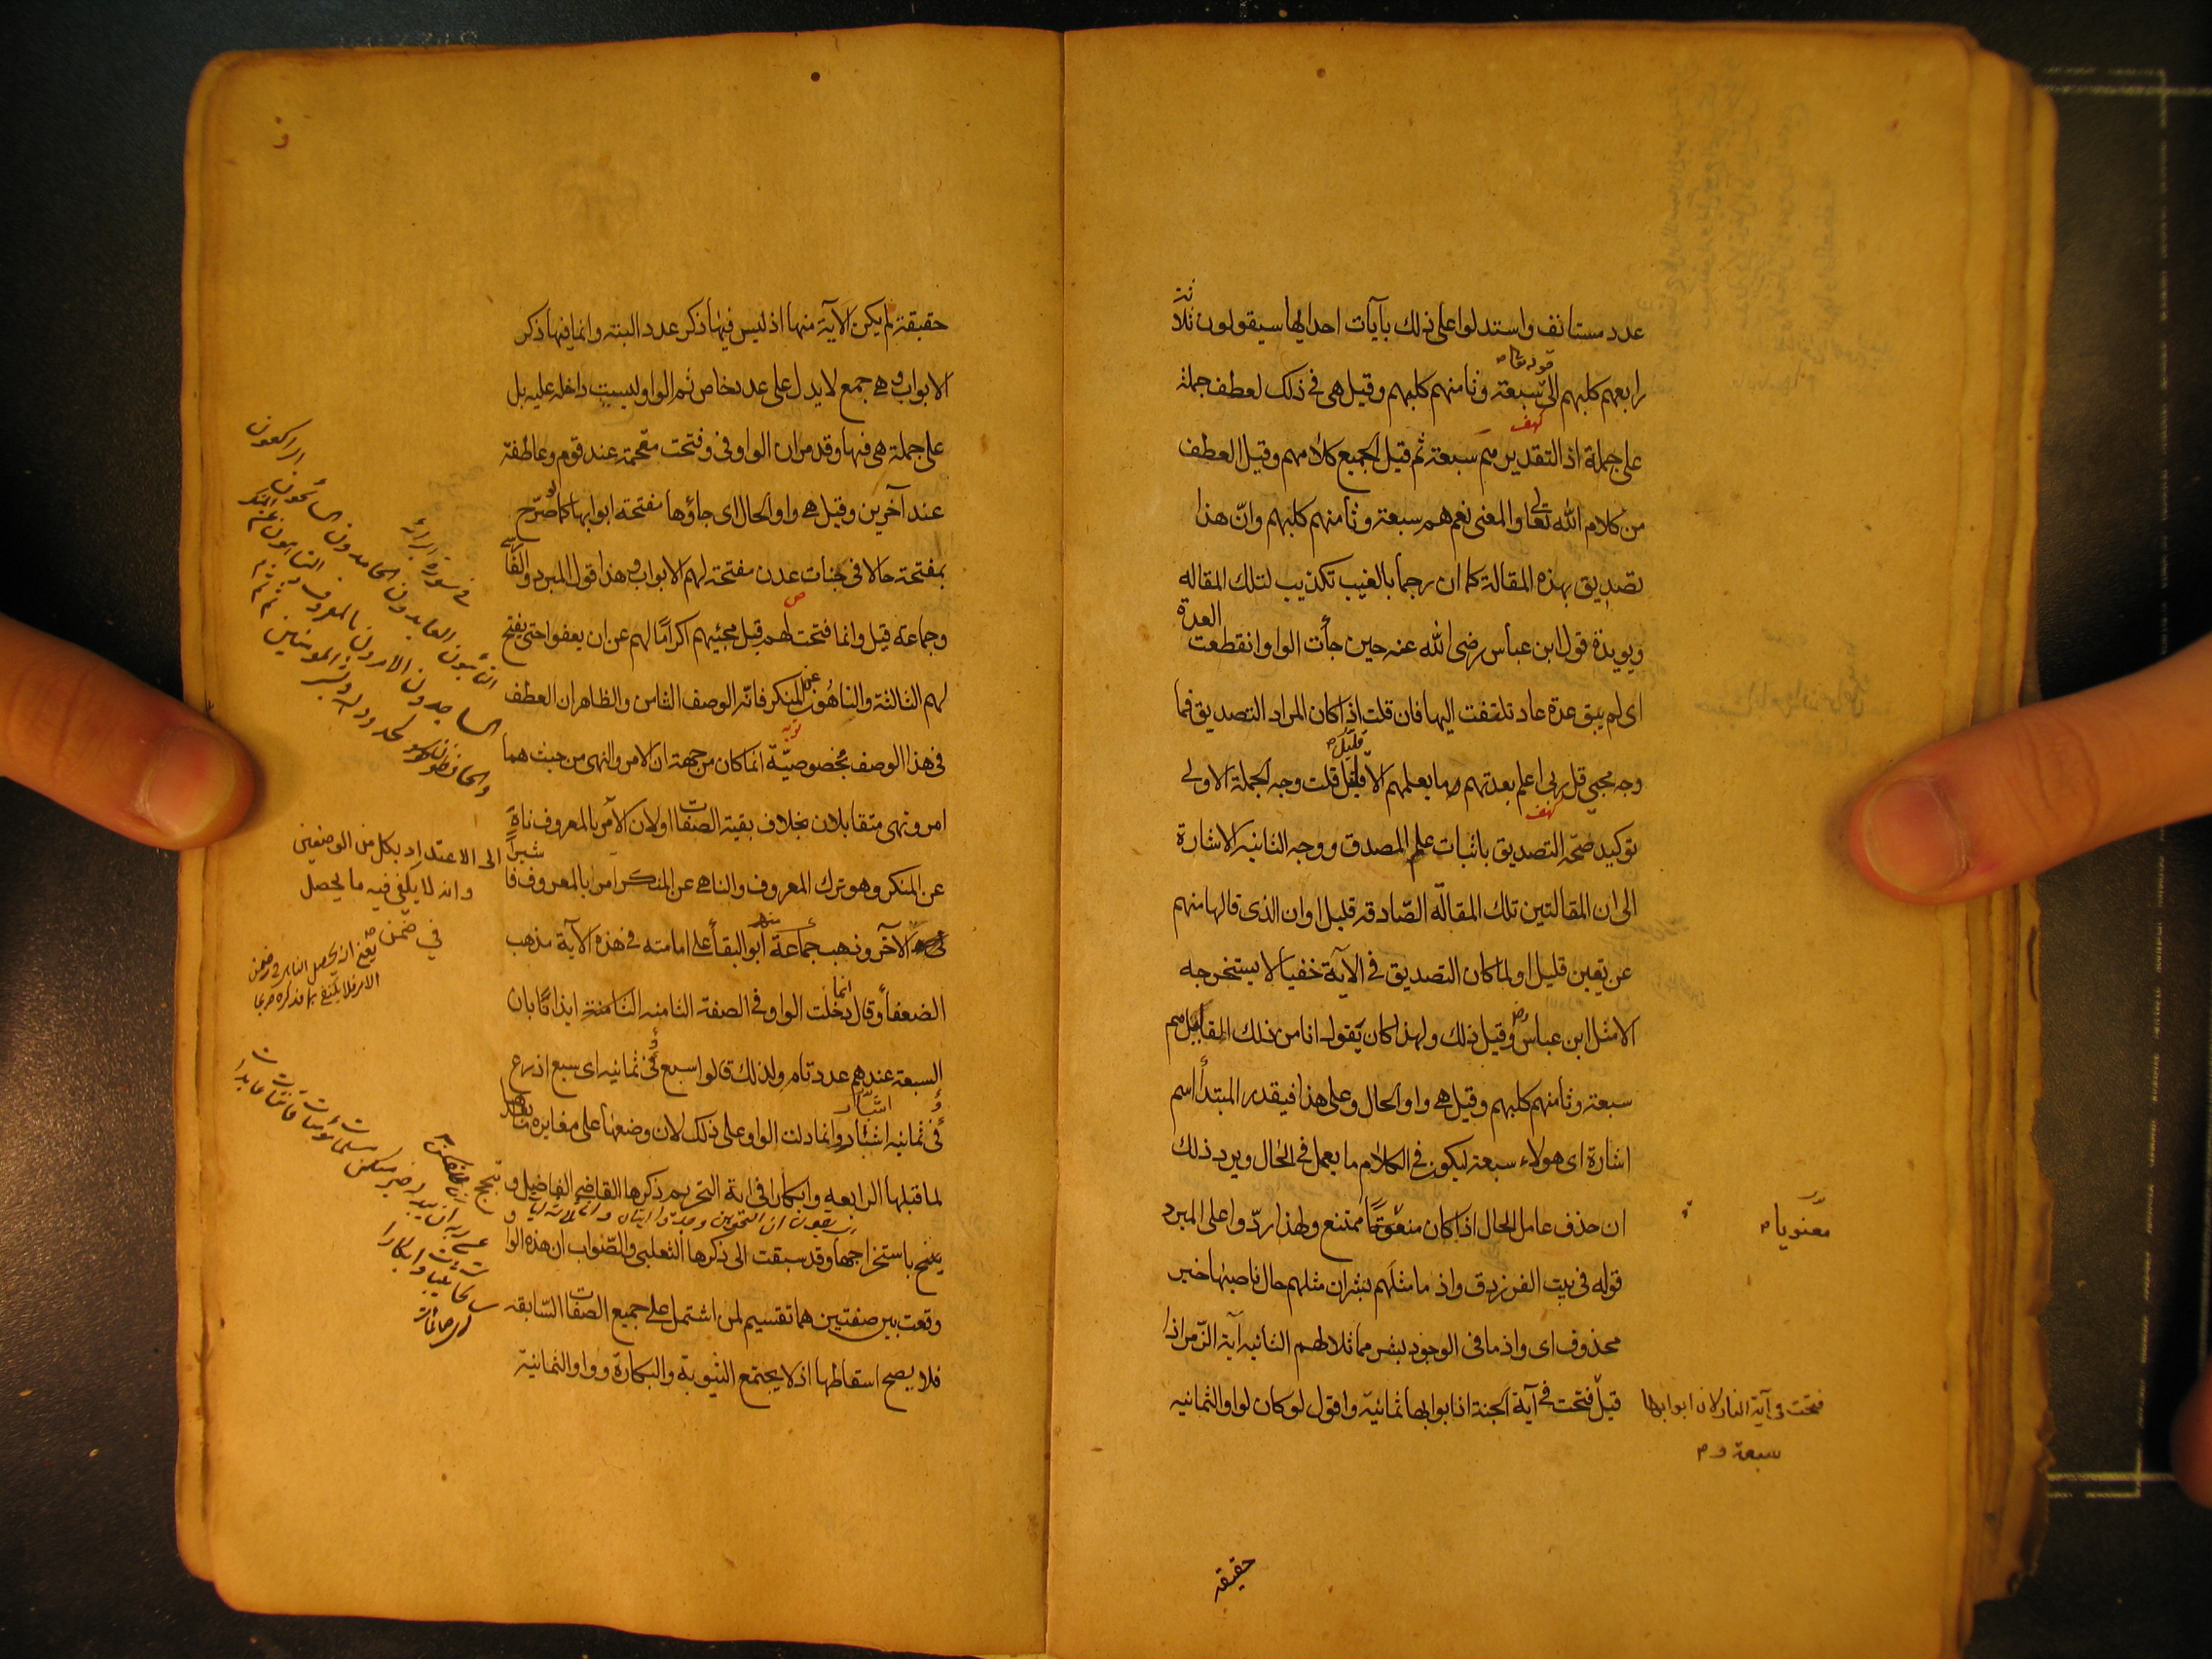 عدد مستانف واستدلوا على ذلك بآيات احدايها سيقولون ثلاثة
رابعهم كلبهم الى قوله تعا سبعة وثامنهم كلبهم وقيل هي في ذلك لعطف جملة
كهف
على جملة اذ التقدير هم سبعة ثم قيل الجميع كلامهم وقيل العطف
من كلام الله تعالى والمعنى نعم هم سبعة وثامنهم كلبهم وانّ هذا
تصديق بهذه المقالة كما ان رجما بالغيب تكذيب لتلك المقاله
ويويدة قول ابن عباس رضى الله عنه حين جأت الواو انقطعت العدة
اى لم يبق عدة عاد تلتفت اليها فان قلت اذا كان المراد التصديق فما
وجه مجيء قل ربى اعلم بعدتهم وما يعلمهم الا قليل قلت وجه الجملة الاولى
كهف
توكيد صحّة التصديق باثبات علم المصدق ووجه الثانيه الاشارة
الى ان المقالتين تلك المقالّة الصّادقه قليل اوان الذى قالها منهم
عن يقين قليل او لما كان التصديق في الآية خفيا لا يستخرجه
الا مثل ابن عباس رض وقيل ذلك ولهذا كان يقول انا من ذلك القليل هم
سبعة وثامنهم كلبهم وقيل هي واو الحال وعلى هذا فيقدر المبتدأ اسم
اشارة اى هولاء سبعة ليكون في الكلام ما يعمل في الحال ويرد ذلك
ان حذف عامل الحال اذا كان ممتنع ولهذا ردّوا على المبرد
معنويا
قوله في بيت الفرزدق واذ ما مثلهم بشر ان مثلهم حال ناصبها خبر
محذوف اى واذ ما في الوجود بشر مماثلا لهم الثانيه آية الزّمر اذا
قيل فتحت في آية النار لان ابوابها
سبعة و
فتحت في آية الجنة اذ ابوابها ثمانيّة واقول لو كان لواو الثمانيه
حقيقة
حقيقة لم يكن الآية منها اذ ليس فيها ذكر عدد البتة وانما فيها ذكر
الابواب وهي جمع لا يدل على عدد خاص ثم الواو ليست داخلة عليه بل
على جملة هي فيها وقد مر ان الواو في وفتحت مقحمة عند قوم وعاطفة
عند آخرين وقيل هي واو الحال اى جاؤها مفتحة ابوابها كما صرّح
بمفتحة حالا في جنات عدن مفتحة لهم الابواب وهذا قول المبرد والفارسى
ص
وجماعة قيل وانما فتحت لهم قبل مجيئهم اكرامًا لهم عن ان يقفوا حتى يفتح
لهم الثالثة والناهون عن المنكر فانّه الوصف الثامن والظاهر ان العطف
توبه
في هذا الوصف بخصوصيّة انما كان من جهة ان الامر والنهى من حيث هما
امر ونهى متقابلان بخلاف بقية الصفات او لان الآمر بالمعروف ناه
عن المنكر وهو ترك المعروف والناهى عن المنكر آمر بالمعروف فا
شير الى الاعتداد بكل من الوصفين
وانه لا يكفى فيه ما يحصل
في ضمن
الآخر وذهب جماعة منهم ابو البقأ على امامته في هذه الآية مذهب
الضعفأ وقال انما دخلت الواو في الصفة الثامنه ايذانًا بان
السبعة عندهم عدد تام ولذلك قالوا سبع في ثمانيه اى سبع اذرع
في ثمانيه اشبار وانما دلت الواو على ذلك لان وضعها على مغايرة ما بعدها
لما قبلها الرابعه وابكارا في اية التحريم ذكرها القاضى الفاضل و
تبجح باستخراجها وقد سبقت الى ذكرها الثعلبى والصّواب ان هذه الواو
وقعت بين صفتين هما تقسيم لمن اشتمل على جميع الصفات السّابقه
فلا يصح اسقاطها اذ لا يجتمع الثيوبة والبكارة وواو الثمانية
في سورة البراءة
التائبون العابدون الحامدون السائحون الراكعون
الساجدون الآمرون بالمعروف والناهون عن المنكر
والحافظون لحدود الله وبشر المؤمنين
عسى ربه ان يبدله خيرا منكن مسلمات مؤمنات قانتات عابدات
سائحات ثيبات وابكارا